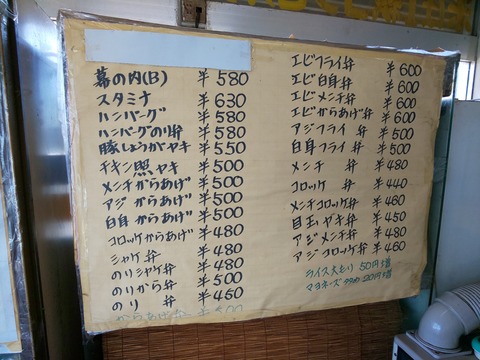 幕の内(B) ¥580
スタミナ ¥630
ハンバーグ ¥580
ハンバーグのり弁 ¥580
豚しょうがヤキ ¥550
チキン照ヤキ ¥500
メンチからあげ ¥500
アジからあげ ¥500
白身からあげ ¥500
コロッケからあげ ¥480
シャケ弁 ¥480
のりシャケ弁 ¥480
のりから弁 ¥500
のり弁 ¥450
エビフライ弁 ¥600
エビ白身弁 ¥600
エビメンチ弁 ¥600
エビからあげ弁 ¥600
アジフライ弁 ¥500
白身フライ弁 ¥500
メンチ弁 ¥480
コロッケ弁 ¥440
メンチコロッケ弁 ¥460
目玉ヤキ弁 ¥450
アジメンチ弁 ¥480
アジコロッケ弁 ¥460
ライス大もり 50円増